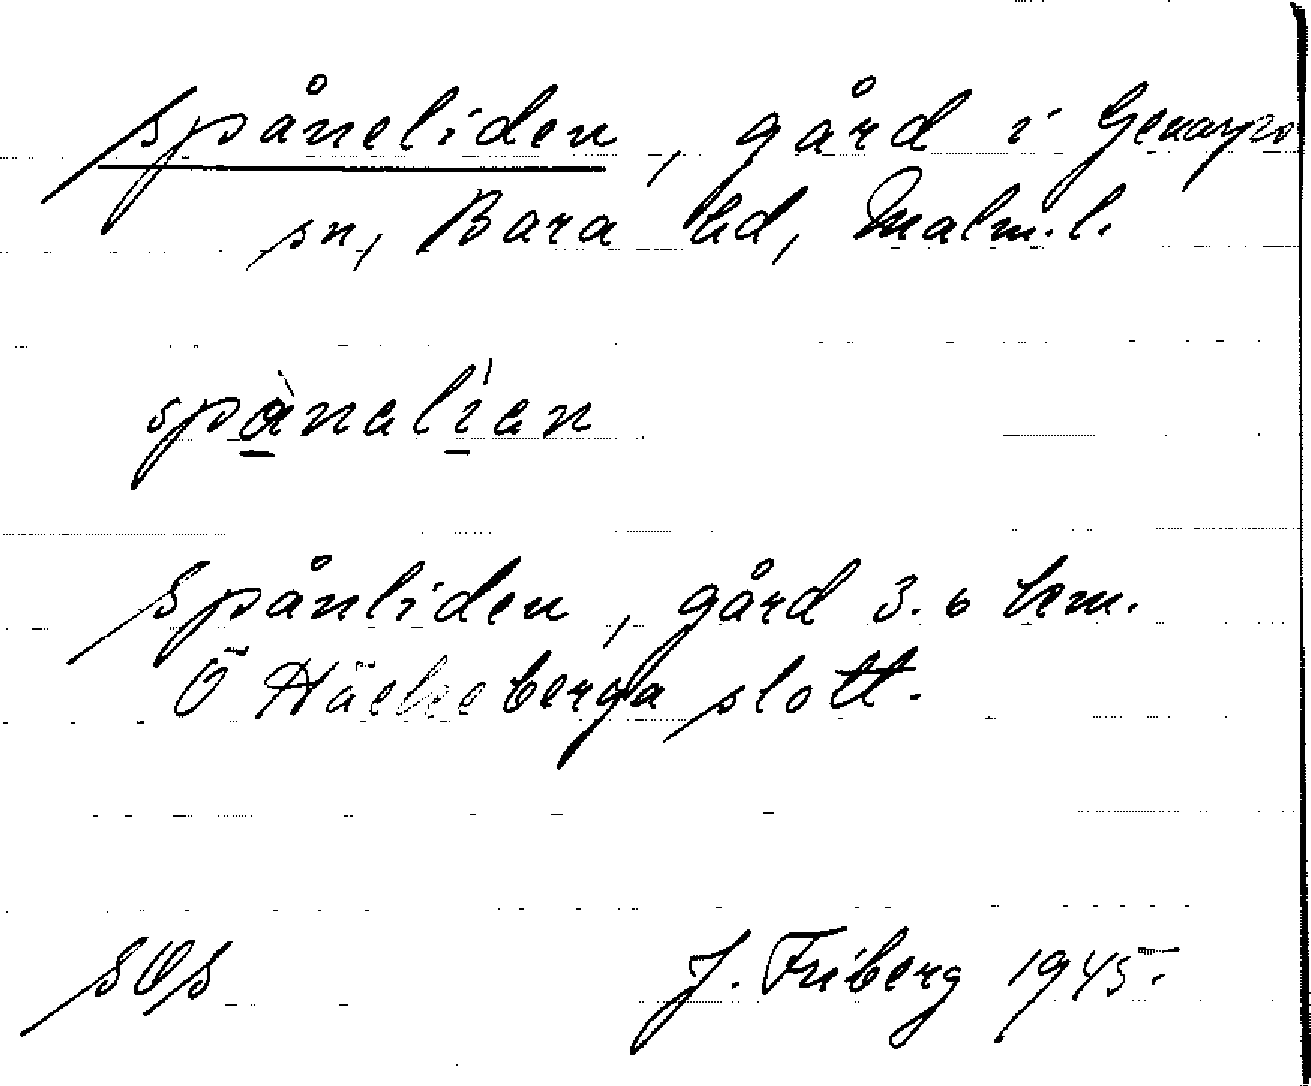 Spåneliden, gård i Genarps
sn, Bara hd, Malm. l.
spànalían
Spånliden, gård 3.6 km.
Ö Häckeberga slott.
SOS J. Friberg 1945.